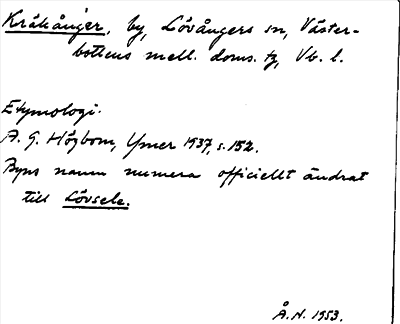 Kråkånger, by, Lövångers sn, Väster-
bottens mell. doms. tg, Vb. l.
Etymologi.
A. G. Högbom, Ymer 1937, s. 152.
Byns namn numera officiellt ändrat
till Lövsele.
Å. N. 1953.